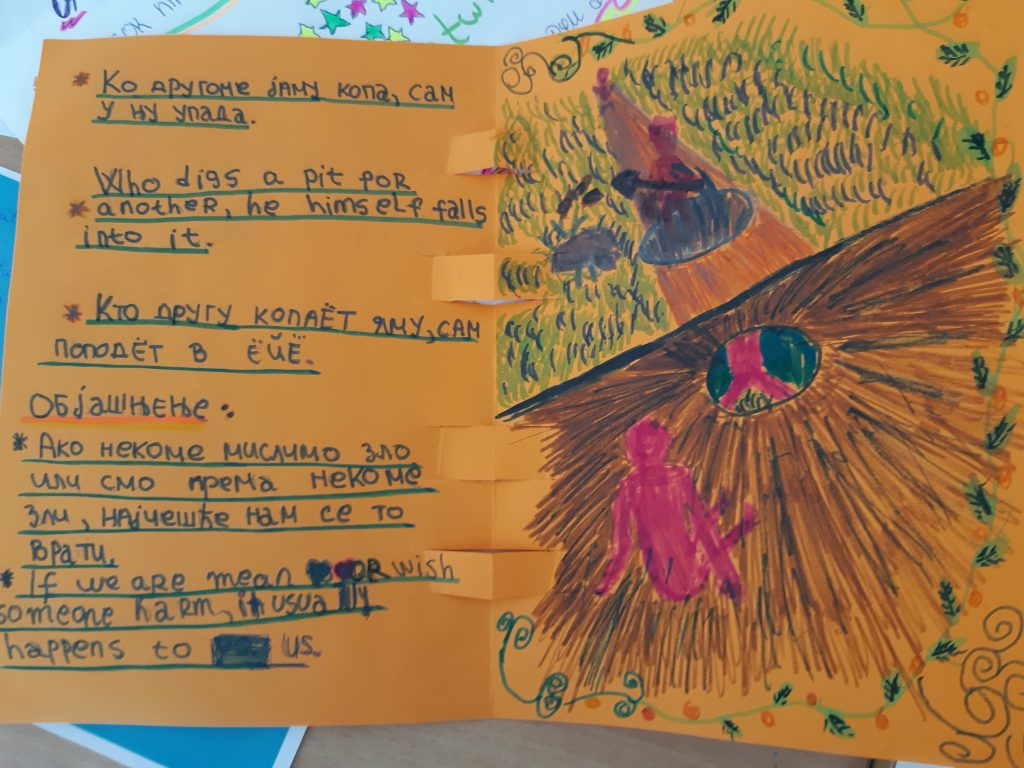 * Ко другоме јаму копа, сам
у ну упада.
Who digs a pit for
* another, he himself falls
into it.
* Кто другу копаёт яму, сам
поподёт в ёйё.
Објашњење:
* Ако некоме мислимо зло
или смо према некоме
зли, најчешће нам се то
врати.
* If we are mean or wish
someone harm, it usually
happens to us.